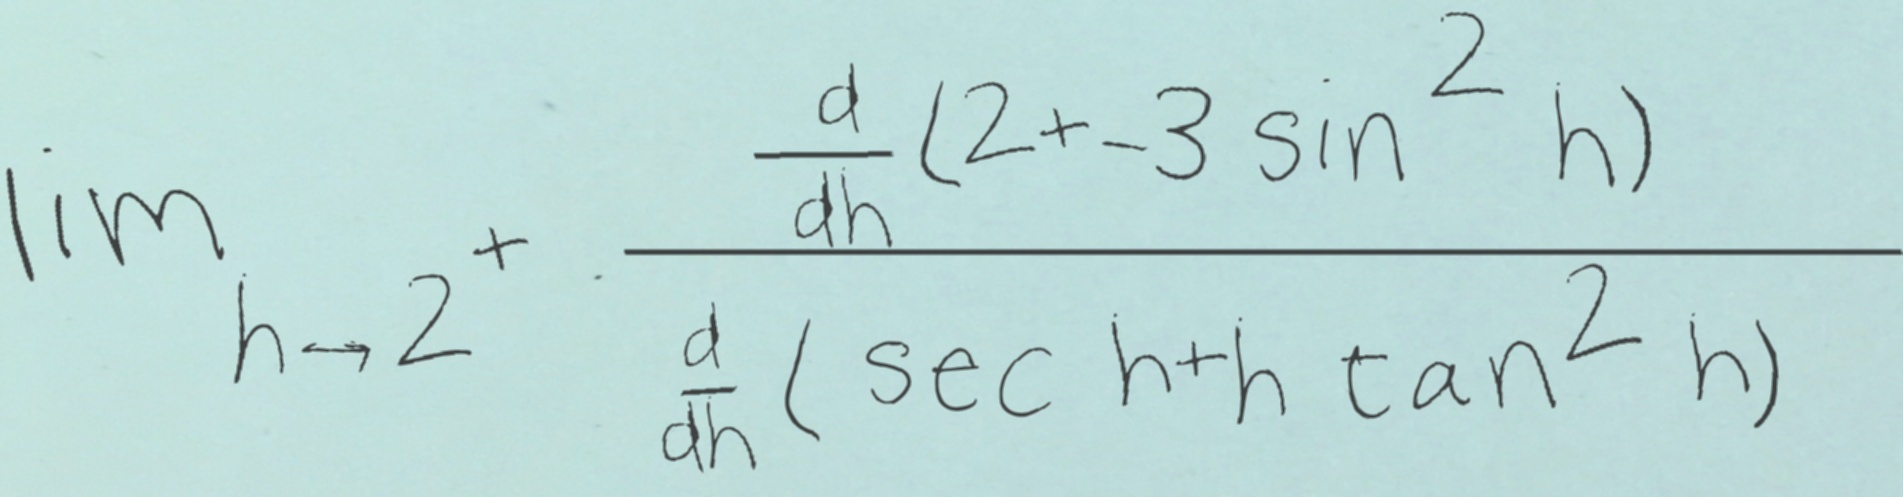 \lim_{h \to 2^+} \frac{\frac{d}{dh}(2+-3 \sin^2 h)}{\frac{d}{dh}(\sec h+h \tan^2 h)}